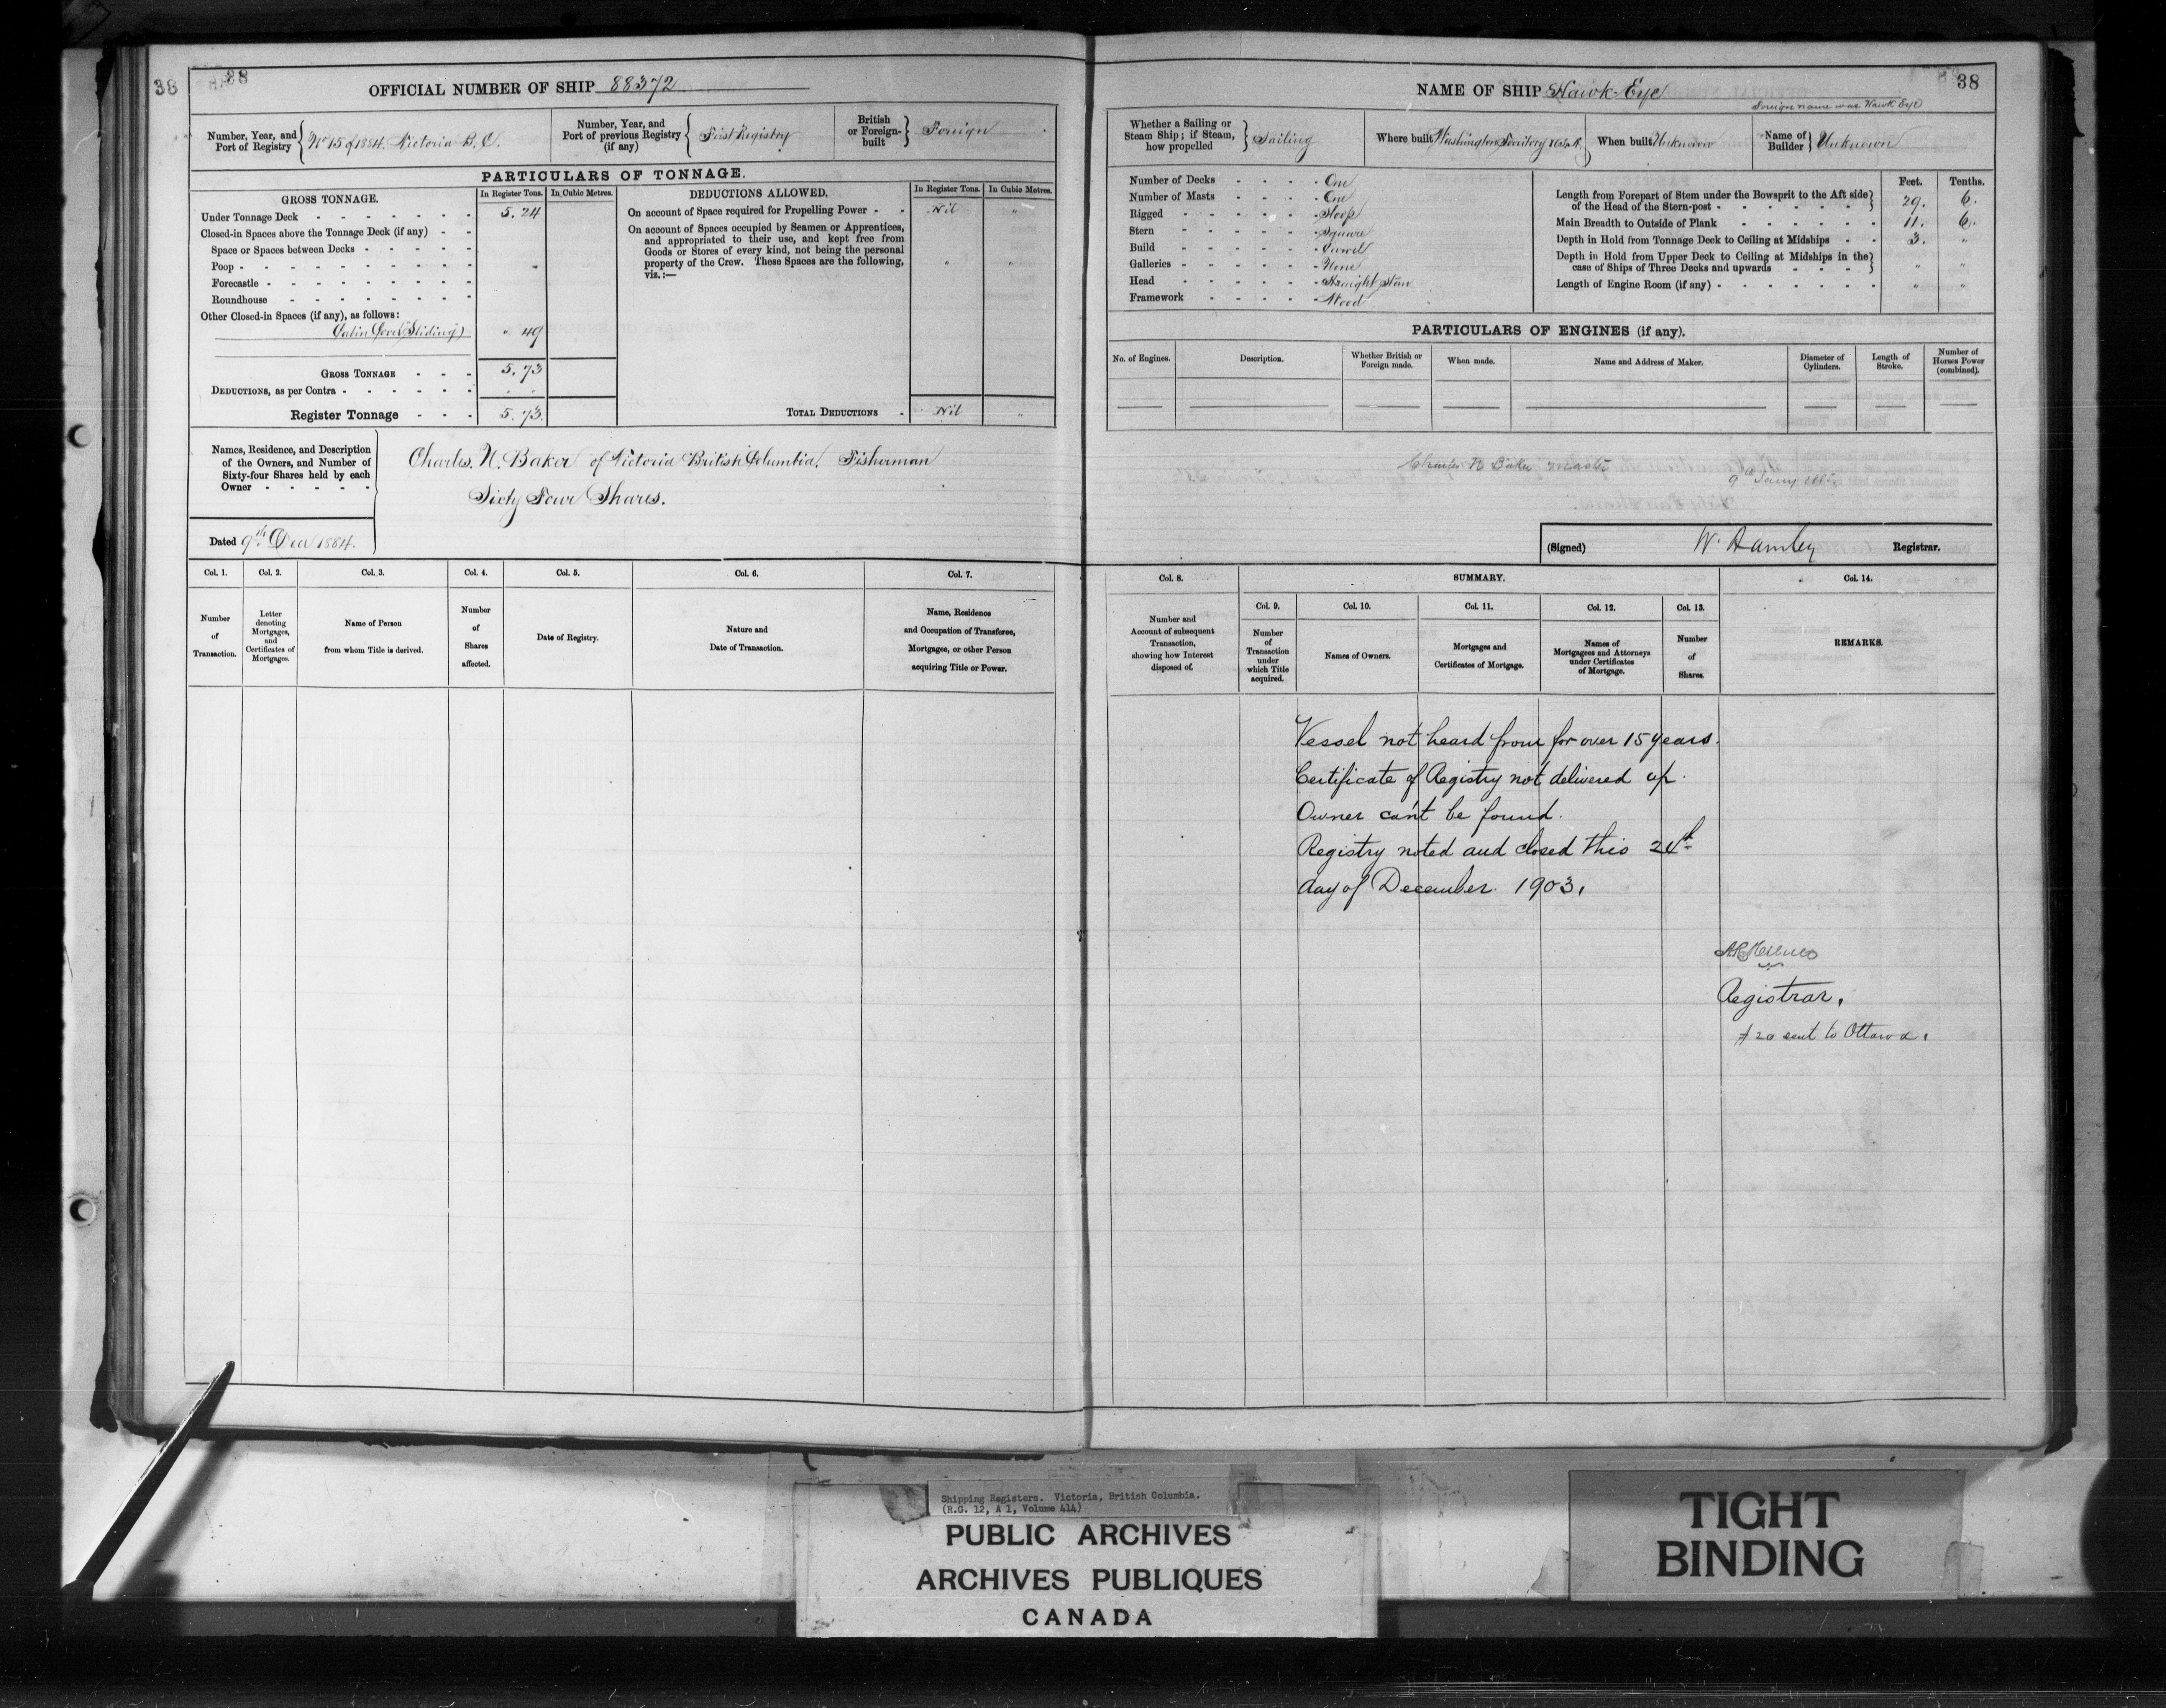 38
38
OFFICIAL NUMBER OF SHIP 88372
Number, Year, and Port of Registry No 15 of 1884. Victoria B.C.
Number, Year, and Port of previous Registry (if any) First Registry
British or Foreign-built Foreign
PARTICULARS OF TONNAGE.
GROSS TONNAGE. In Register Tons. In Cubic Metres.
DEDUCTIONS ALLOWED. In Register Tons. In Cubic Metres.
Under Tonnage Deck 5.24
Closed-in Spaces above the Tonnage Deck (if any)
Space or Spaces between Decks
Poop
Forecastle
Roundhouse
Other Closed-in Spaces (if any), as follows:
Cabin Cover (Sliding) " 49
GROSS TONNAGE 5.73
DEDUCTIONS, as per Contra
Register Tonnage 5.73
On account of Space required for Propelling Power Nil "
On account of Spaces occupied by Seamen or Apprentices,
and appropriated to their use, and kept free from
Goods or Stores of every kind, not being the personal
property of the Crew. These Spaces are the following,
viz.:—
" "
TOTAL DEDUCTIONS Nil "
Names, Residence, and Description
of the Owners, and Number of
Sixty-four Shares held by each
Owner
Charles N. Baker of Victoria British Columbia, Fisherman
Sixty Four Shares.
Dated 9th Decr 1884.
Col. 1. Col. 2. Col. 3. Col. 4. Col. 5. Col. 6. Col. 7.
Number of Transaction.
Letter denoting Mortgages, and Certificates of Mortgages.
Name of Person from whom Title is derived.
Number of Shares affected.
Date of Registry.
Nature and Date of Transaction.
Name, Residence and Occupation of Transferee, Mortgagee, or other Person acquiring Title or Power.
NAME OF SHIP Hawk-Eye
38
Foreign name was Hawk Eye
Whether a Sailing or Steam Ship; if Steam, how propelled Sailing
Where built Washington Territory U.S.A.
When built Unknown
Name of Builder Unknown
Number of Decks One
Number of Masts One
Rigged Sloop
Stern Square
Build Carvel
Galleries None
Head Straight Stem
Framework Wood
Feet. Tenths.
Length from Forepart of Stem under the Bowsprit to the Aft side
of the Head of the Stern-post 29. 6.
Main Breadth to Outside of Plank 11. 6.
Depth in Hold from Tonnage Deck to Ceiling at Midships 3. "
Depth in Hold from Upper Deck to Ceiling at Midships in the
case of Ships of Three Decks and upwards " "
Length of Engine Room (if any) " "
PARTICULARS OF ENGINES (if any).
No. of Engines. Description. Whether British or Foreign made. When made. Name and Address of Maker. Diameter of Cylinders. Length of Stroke. Number of Horses Power (combined).
Charles N Baker Master
9th Jany 1885.
(Signed) W. Hamley Registrar.
Col. 8. SUMMARY. Col. 14.
Col. 9. Col. 10. Col. 11. Col. 12. Col. 13.
Number and Account of subsequent Transaction, showing how Interest disposed of.
Number of Transaction under which Title acquired.
Names of Owners.
Mortgages and Certificates of Mortgage.
Names of Mortgagees and Attorneys under Certificates of Mortgage.
Number of Shares.
REMARKS.
Vessel not heard from for over 15 years.
Certificate of Registry not delivered up.
Owner can't be found.
Registry noted and closed this 24th
day of December 1903.
Registrar.
20 sent to Ottawa.
Shipping Registers. Victoria, British Columbia.
(R.G. 12, A 1, Volume 414)
PUBLIC ARCHIVES
ARCHIVES PUBLIQUES
CANADA
TIGHT
BINDING